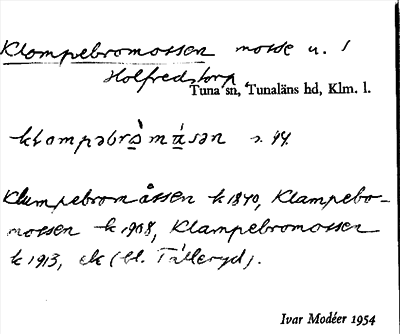 Klampebromossen mosse u. /
Holfredstorp
Tuna sn, Tunaläns hd, Klm. l.
klampəbrò mɑ́sən s. 94.
Klumpebromåssen k 1840, Klampebo-
mossen k 1908, Klampebromossen
k 1913, ek (bl. Tålleryd).
Ivar Modéer 1954